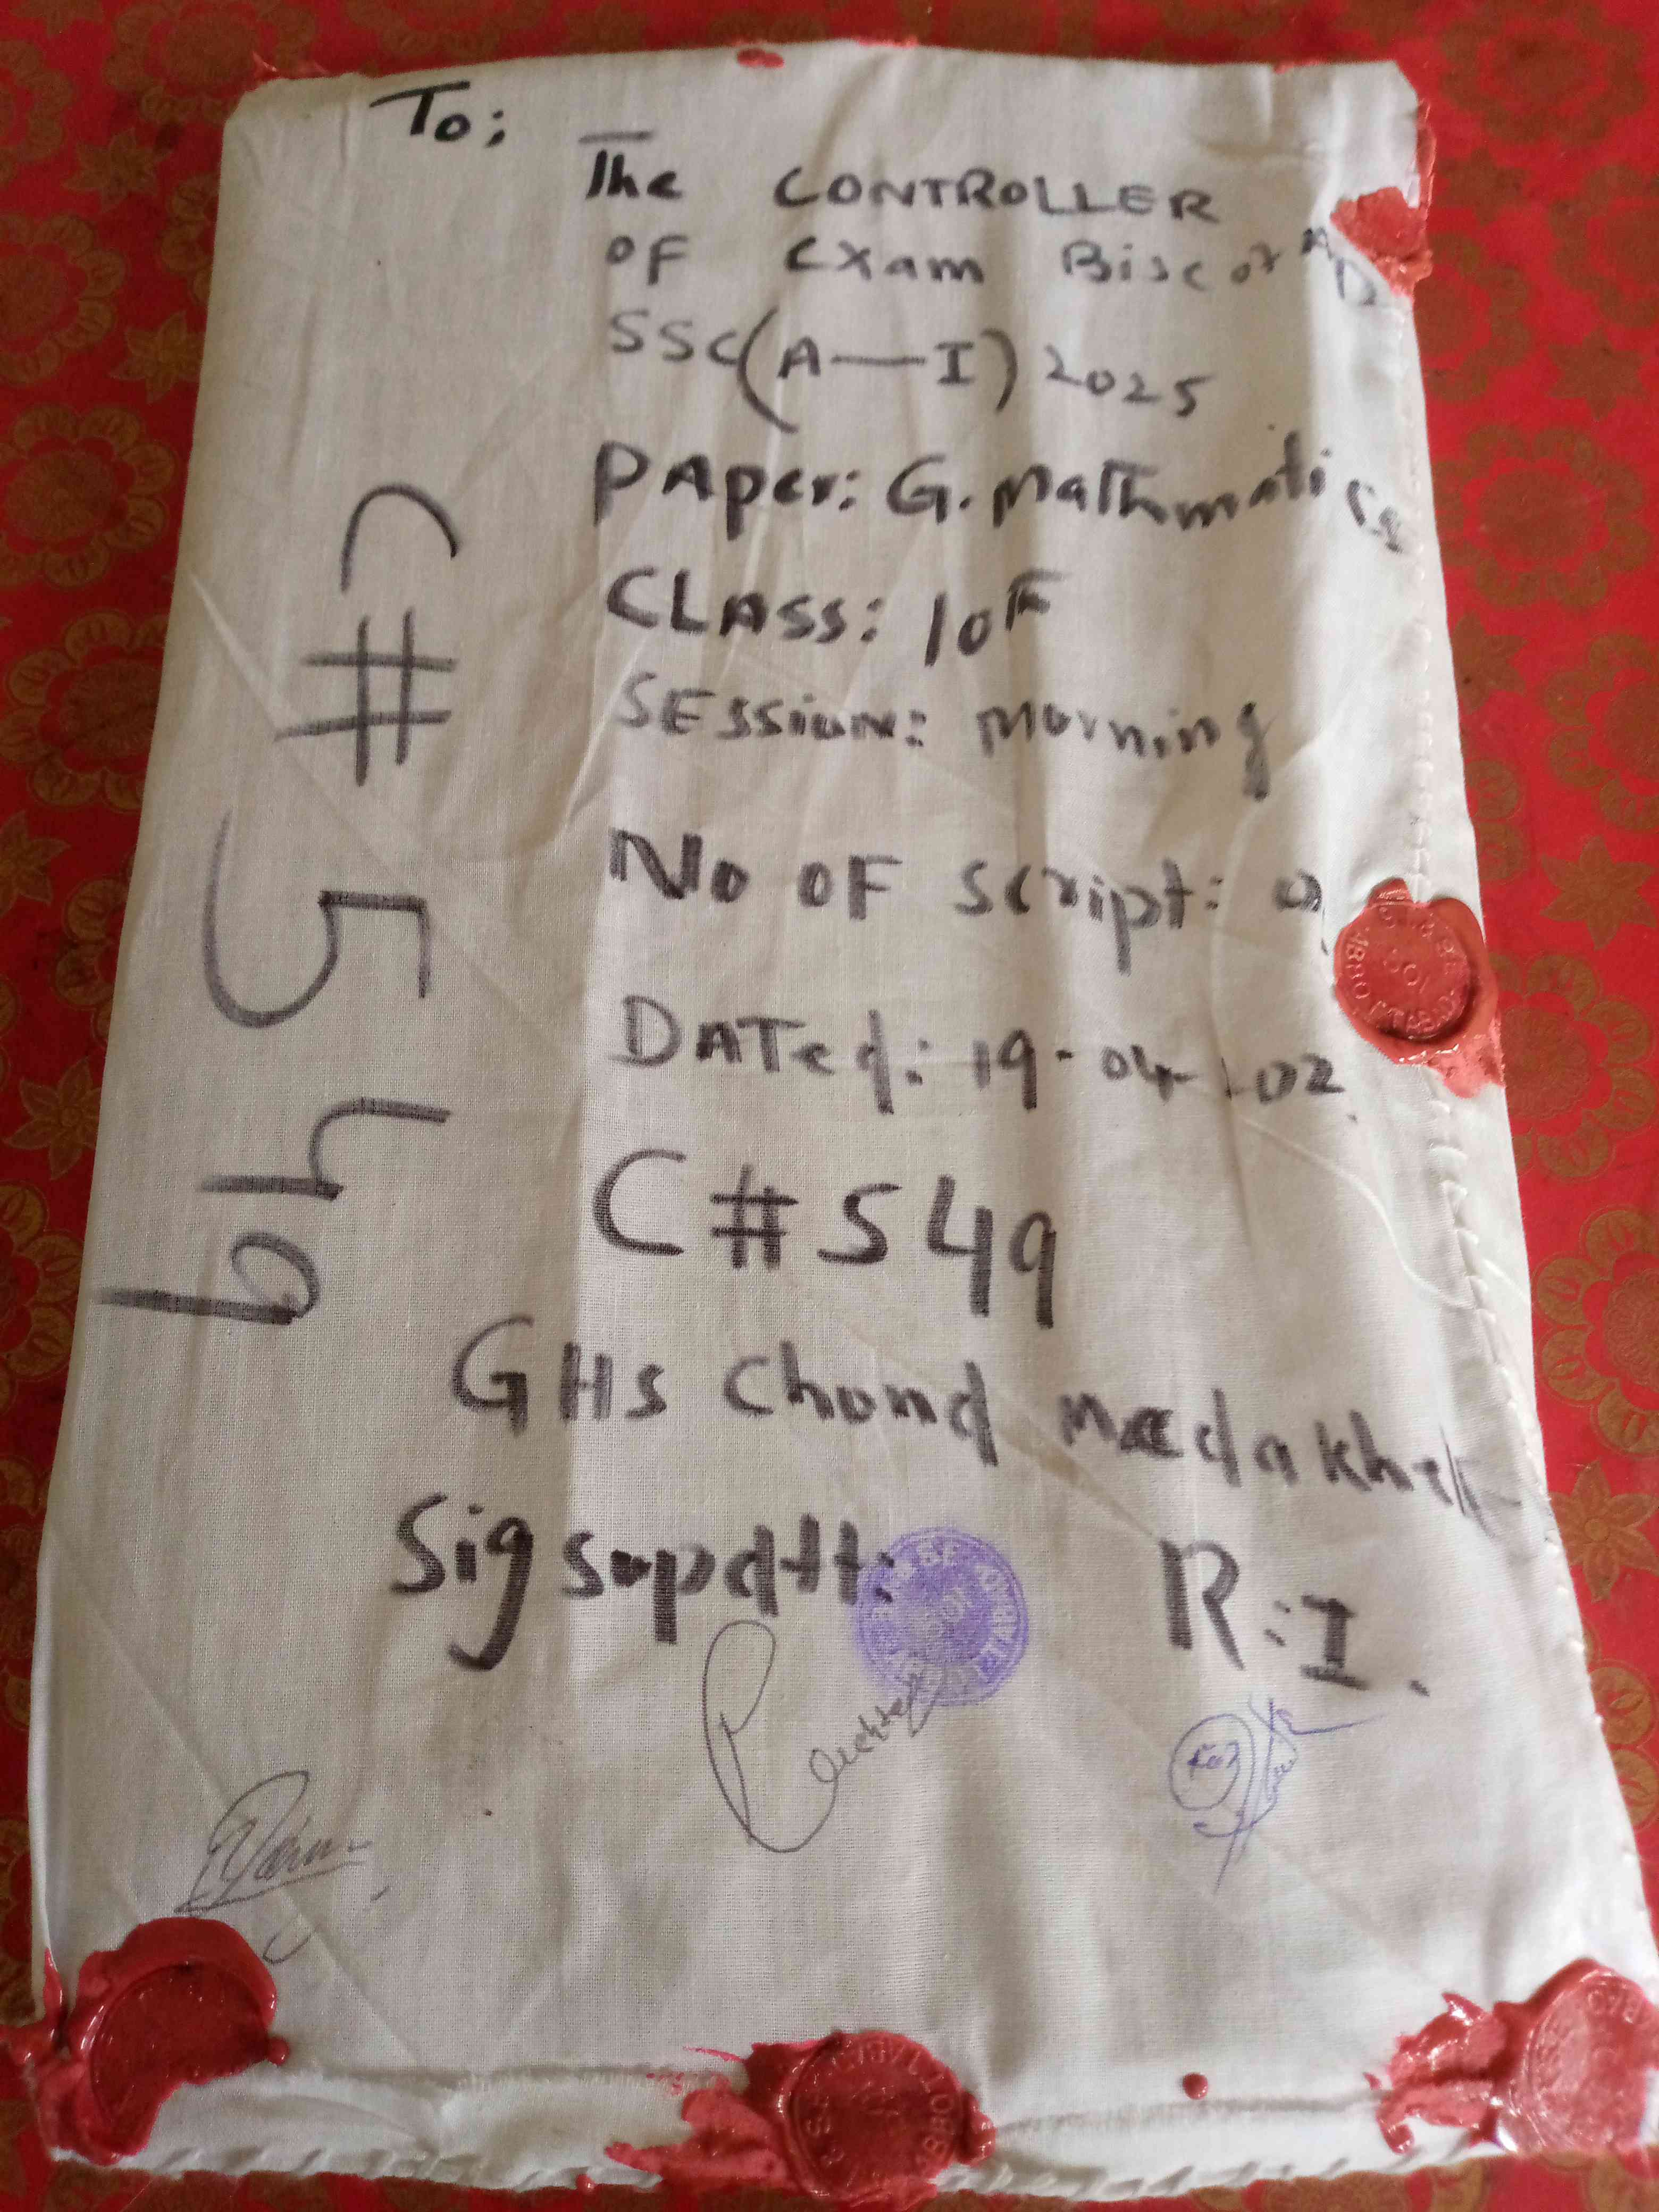 To;
The CONTROLLER
OF Exam Bise
SSC(A—I) 2025
PAper: G. Mathmatics
CLASS: 10
SESSiON: Morning
No OF Script:
DATed: 19-04-202
C#549
GHS Chond
Sig supdtt:
R:I.
C#549